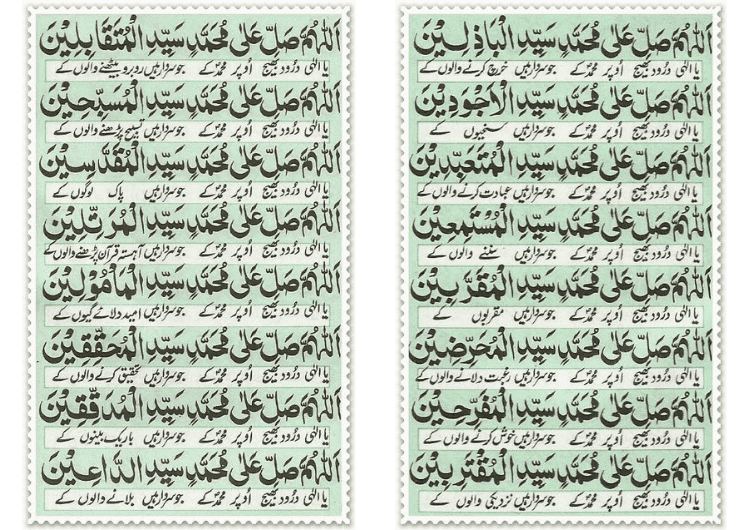 اَللّٰهُمَّ صَلِّ عَلٰى مُحَمَّدٍ سَيِّدِ الْبَاذِلِيْنَ
یا الٰہی درُود بھیج اُوپر محمدؐ کے جو سردار ہیں خرچ کرنے والوں کے
اَللّٰهُمَّ صَلِّ عَلٰى مُحَمَّدٍ سَيِّدِ الْاَجْوَدِيْنَ
یا الٰہی درُود بھیج اُوپر محمدؐ کے جو سردار ہیں سخیوں کے
اَللّٰهُمَّ صَلِّ عَلٰى مُحَمَّدٍ سَيِّدِ الْمُتَعَبِّدِيْنَ
یا الٰہی درُود بھیج اُوپر محمدؐ کے جو سردار ہیں عبادت کرنے والوں کے
اَللّٰهُمَّ صَلِّ عَلٰى مُحَمَّدٍ سَيِّدِ الْمُسْتَمِعِيْنَ
یا الٰہی درُود بھیج اُوپر محمدؐ کے جو سردار ہیں سننے والوں کے
اَللّٰهُمَّ صَلِّ عَلٰى مُحَمَّدٍ سَيِّدِ الْمُقَرَّبِيْنَ
یا الٰہی درُود بھیج اُوپر محمدؐ کے جو سردار ہیں مقربوں کے
اَللّٰهُمَّ صَلِّ عَلٰى مُحَمَّدٍ سَيِّدِ الْمُحَرِّضِيْنَ
یا الٰہی درُود بھیج اُوپر محمدؐ کے جو سردار ہیں رغبت دلانے والوں کے
اَللّٰهُمَّ صَلِّ عَلٰى مُحَمَّدٍ سَيِّدِ الْمُفَرِّحِيْنَ
یا الٰہی درُود بھیج اُوپر محمدؐ کے جو سردار ہیں خوش کرنے والوں کے
اَللّٰهُمَّ صَلِّ عَلٰى مُحَمَّدٍ سَيِّدِ الْمُقْتَرِبِيْنَ
یا الٰہی درُود بھیج اُوپر محمدؐ کے جو سردار ہیں نزدیکی والوں کے
اَللّٰهُمَّ صَلِّ عَلٰى مُحَمَّدٍ سَيِّدِ الْمُتَقَابِلِيْنَ
یا الٰہی درُود بھیج اُوپر محمدؐ کے جو سردار ہیں روبرو بیٹھنے والوں کے
اَللّٰهُمَّ صَلِّ عَلٰى مُحَمَّدٍ سَيِّدِ الْمُسَبِّحِيْنَ
یا الٰہی درُود بھیج اُوپر محمدؐ کے جو سردار ہیں تسبیح پڑھنے والوں کے
اَللّٰهُمَّ صَلِّ عَلٰى مُحَمَّدٍ سَيِّدِ الْمُقَدَّسِيْنَ
یا الٰہی درُود بھیج اُوپر محمدؐ کے جو سردار ہیں پاک لوگوں کے
اَللّٰهُمَّ صَلِّ عَلٰى مُحَمَّدٍ سَيِّدِ الْمُرَتِّلِيْنَ
یا الٰہی درُود بھیج اُوپر محمدؐ کے جو سردار ہیں آہستہ قرآن پڑھنے والوں کے
اَللّٰهُمَّ صَلِّ عَلٰى مُحَمَّدٍ سَيِّدِ الْمَأْمُوْلِيْنَ
یا الٰہی درُود بھیج اُوپر محمدؐ کے جو سردار ہیں امید دلائے گیوں کے
اَللّٰهُمَّ صَلِّ عَلٰى مُحَمَّدٍ سَيِّدِ الْمُحَقِّقِيْنَ
یا الٰہی درُود بھیج اُوپر محمدؐ کے جو سردار ہیں تحقیق کرنے والوں کے
اَللّٰهُمَّ صَلِّ عَلٰى مُحَمَّدٍ سَيِّدِ الْمُدَقِّقِيْنَ
یا الٰہی درُود بھیج اُوپر محمدؐ کے جو سردار ہیں باریک بینوں کے
اَللّٰهُمَّ صَلِّ عَلٰى مُحَمَّدٍ سَيِّدِ الدَّاعِيْنَ
یا الٰہی درُود بھیج اُوپر محمدؐ کے جو سردار ہیں بلانے والوں کے